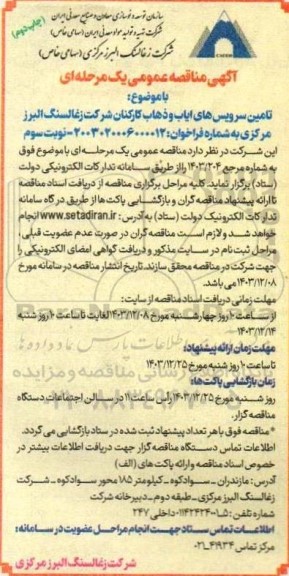 سازمان توسعه و نوسازی معادن و صنایع معدنی ایران
شرکت تهیه و تولید مواد معدنی ایران (سهامی خاص)
شرکت زغالسنگ البرز مرکزی (سهامی خاص)
(چاپ دوم)
آگهی مناقصه عمومی یک مرحله‌ای
با موضوع:
تامین سرویس‌های ایاب و ذهاب کارکنان شرکت زغالسنگ البرز
مرکزی به شماره فراخوان: ۲۰۰۳۰۲۰۰۰۶۰۰۰۰۱۲ - نوبت سوم
این شرکت در نظر دارد مناقصه عمومی یک مرحله‌ای با موضوع فوق
به شماره مرجع ۱۴۰۳/۲۰۴ را از طریق سامانه تدارکات الکترونیکی دولت
(ستاد) برگزار نماید. کلیه مراحل برگزاری مناقصه از دریافت اسناد مناقصه
تا ارائه پیشنهاد مناقصه گران و بازگشایی پاکت‌ها از طریق درگاه سامانه
تدارکات الکترونیک دولت (ستاد) به آدرس: www.setadiran.ir انجام
خواهد شد و لازم است مناقصه گران در صورت عدم عضویت قبلی،
مراحل ثبت نام در سایت مذکور و دریافت گواهی امضای الکترونیکی را
جهت شرکت در مناقصه محقق سازند. تاریخ انتشار مناقصه در سامانه مورخ
۱۴۰۳/۱۲/۰۸ می باشد.
مهلت زمانی دریافت اسناد مناقصه از سایت:
از ساعت ۱۰ روز چهارشنبه مورخ ۱۴۰۳/۱۲/۰۸ لغایت تا ساعت ۱۰ روز شنبه
۱۴۰۳/۱۲/۱۴
مهلت زمان ارائه پیشنهاد:
تا ساعت ۱۰ روز شنبه مورخ ۱۴۰۳/۱۲/۲۵
زمان بازگشایی پاکت‌ها:
روز شنبه مورخ ۱۴۰۳/۱۲/۲۵ راس ساعت ۱۱ در سالن اجتماعات دستگاه
مناقصه گزار.
* مناقصه فوق با هر تعداد پیشنهاد ثبت شده در ستاد بازگشایی می گردد.
اطلاعات تماس دستگاه مناقصه گزار جهت دریافت اطلاعات بیشتر در
خصوص اسناد مناقصه و ارائه پاکت‌های (الف)
آدرس: مازندران - سوادکوه - کیلومتر ۱۸۵ محور سوادکوه - شرکت
زغالسنگ البرز مرکزی - طبقه دوم - دبیرخانه شرکت
شماره تلفن: ۵-۰۱۱۴۲۴۲۴۰۰۱ داخلی ۲۴۷
اطلاعات تماس ستاد جهت انجام مراحل عضویت در سامانه:
مرکز تماس ۴۱۹۳۴-۰۲۱
شرکت زغالسنگ البرز مرکزی